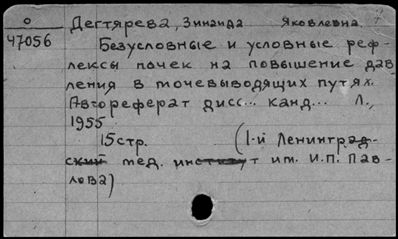 о Дегтярева, Зинаида Яковлевна.
47056 Безусловные и условные реф-
лексы почек на повышение дав
ления в мочевыводящих путях.
Автореферат дисс... канд... Л.,
1955
15 стр. (1-й Ленинград-
ский мед. институт им. И.П. Пав-
лова)